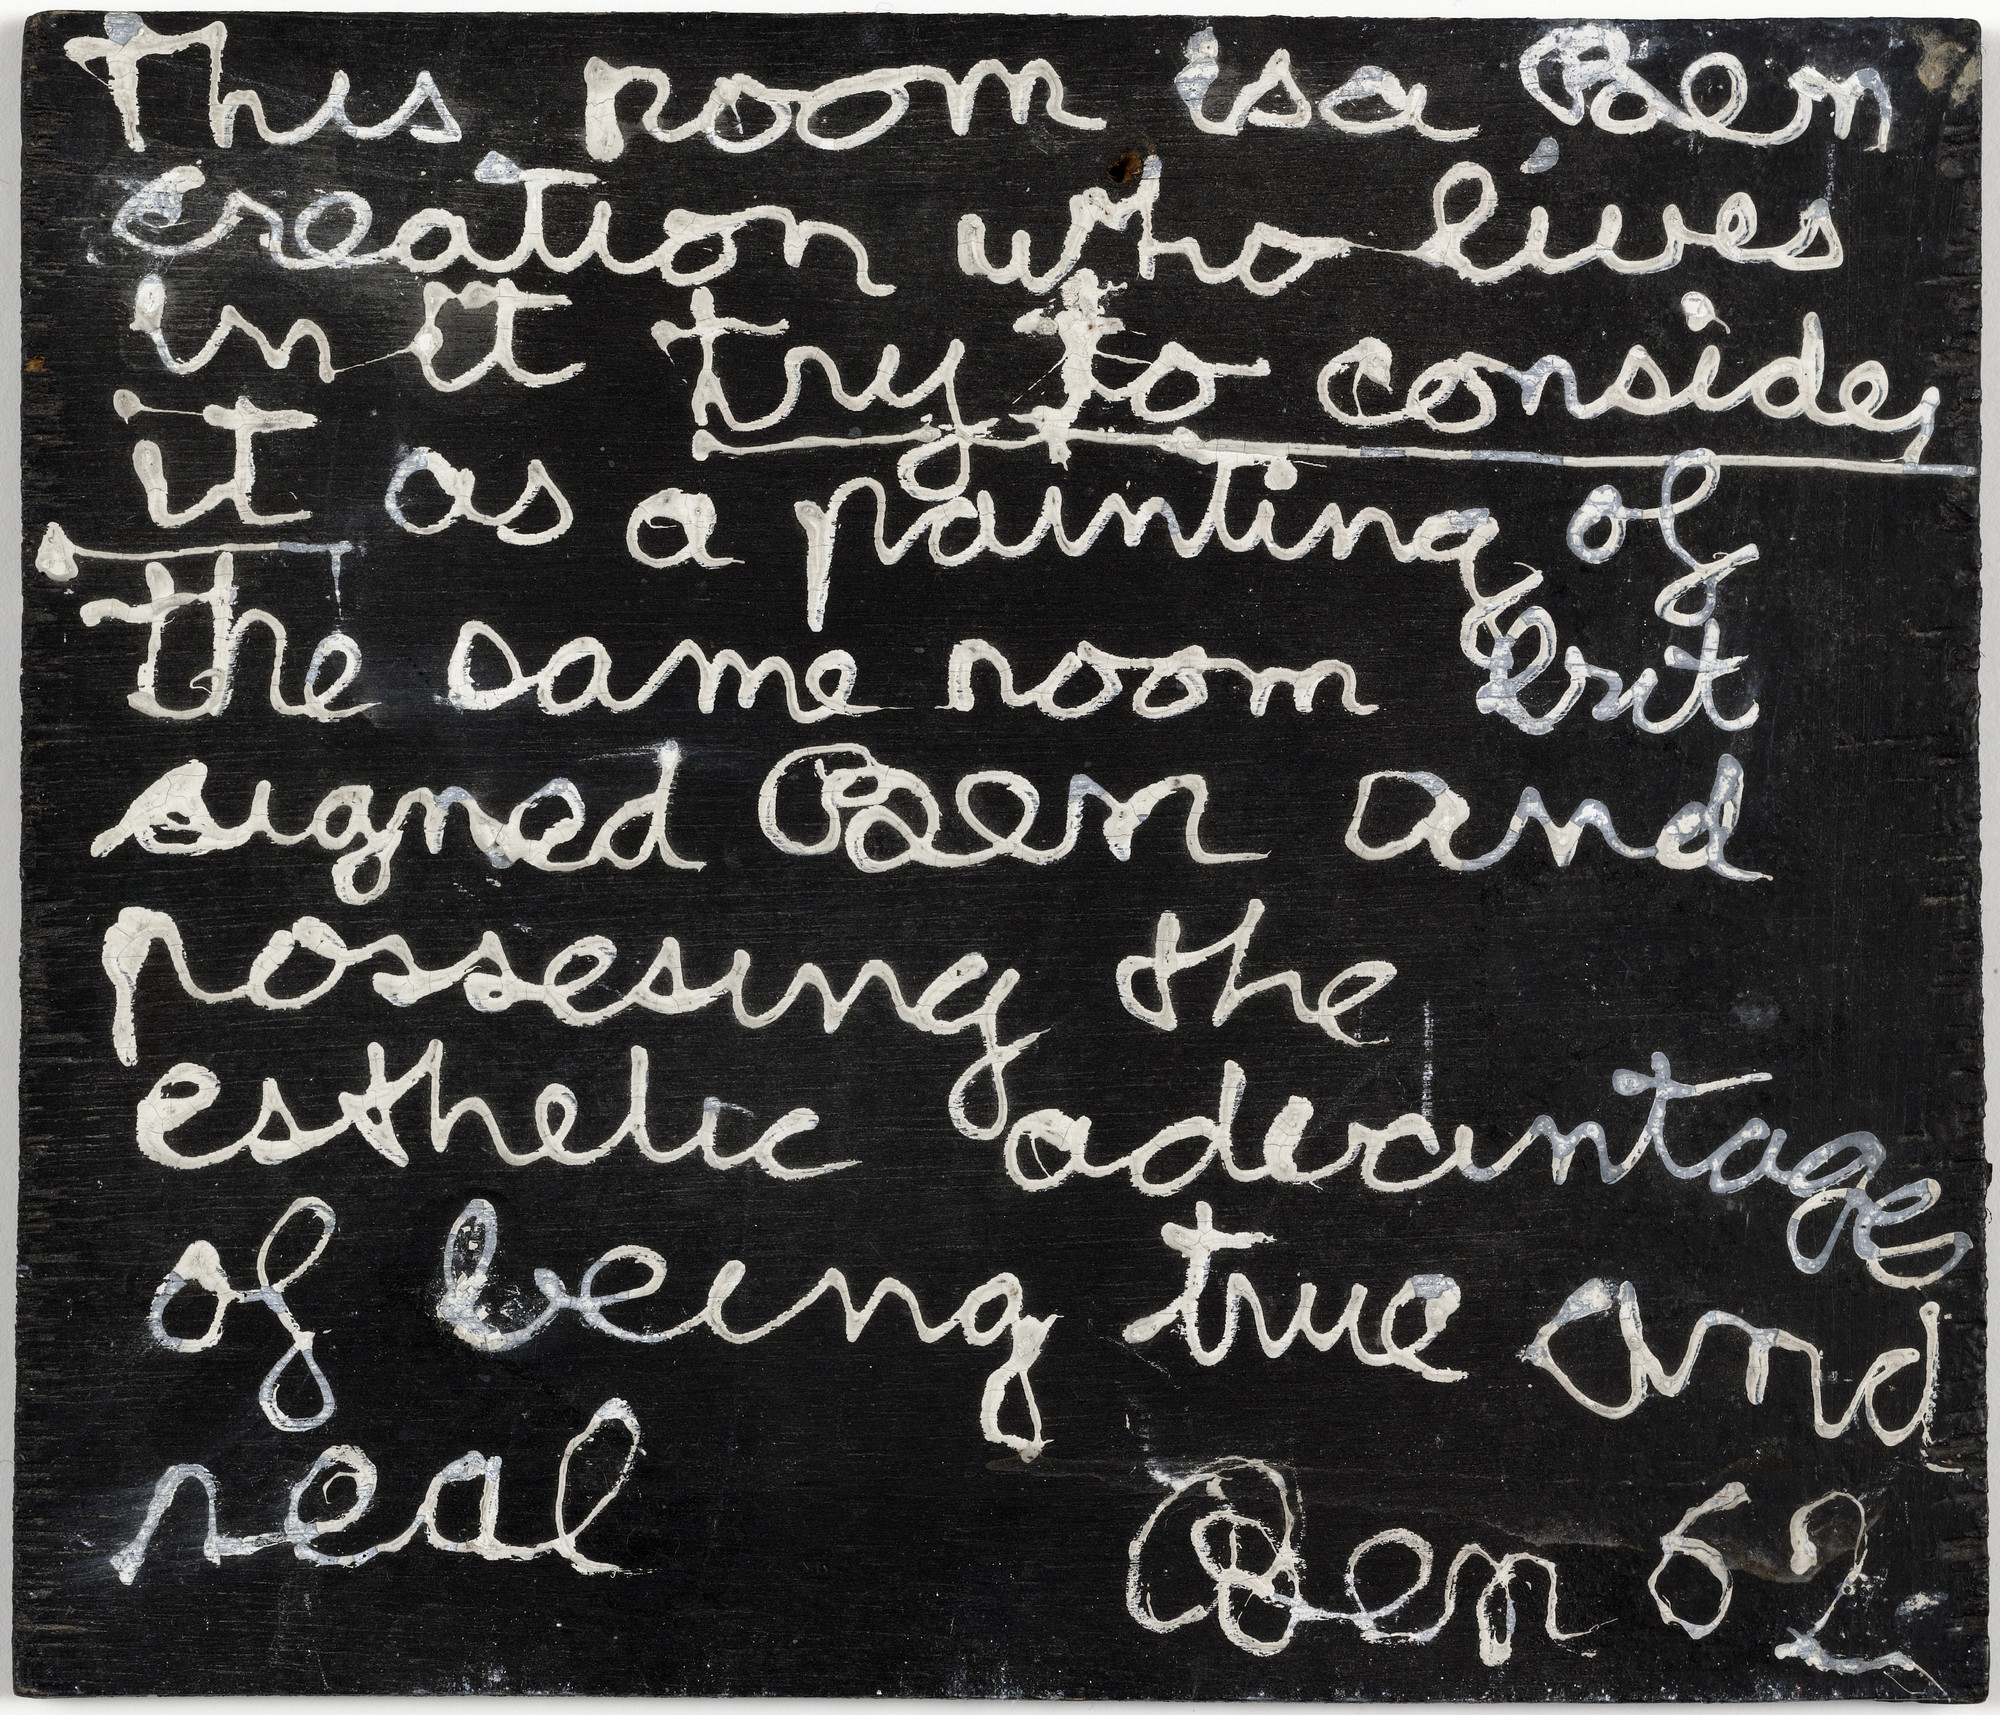 This room is a Ben
creation who lives
in it try to consider
it as a painting of
the same room but
signed Ben and
possesing the
esthetic advantages
of being true and
real Ben 62